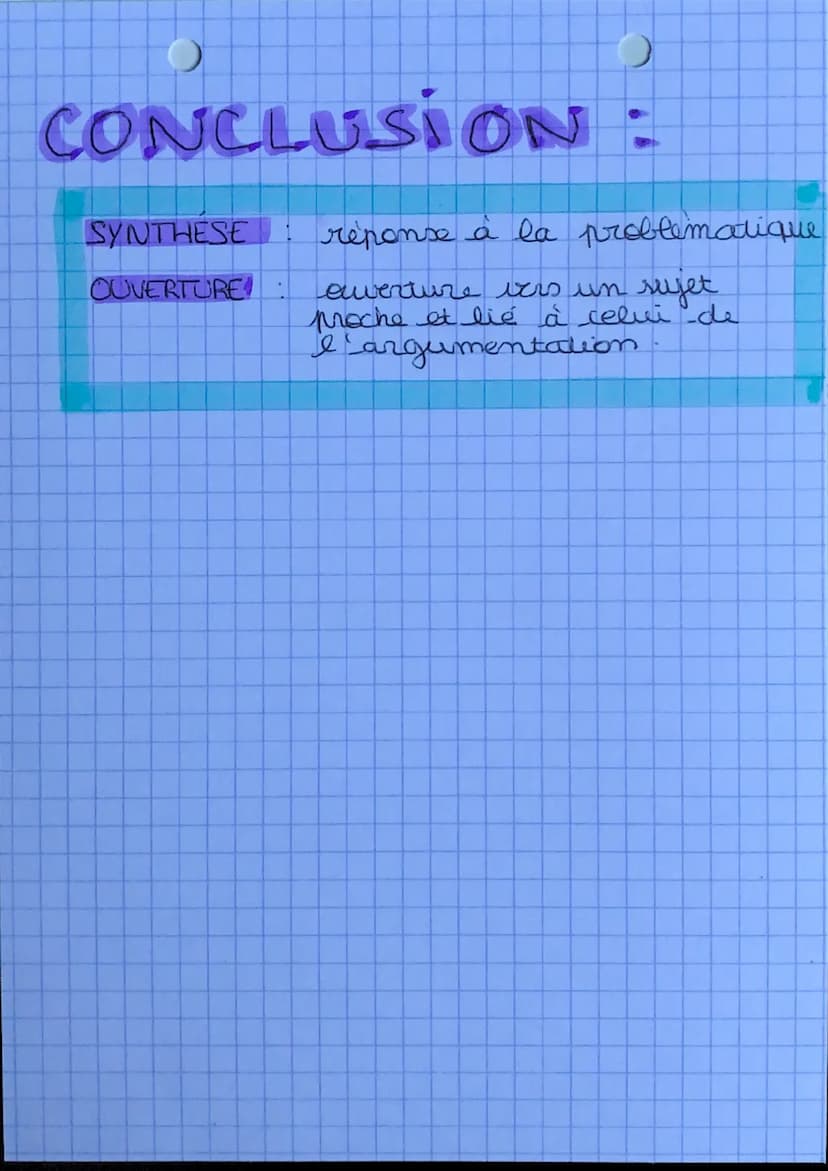 CONCLUSION :
SYNTHÉSE : réponse à la problématique
OUVERTURE : ouverture vers un sujet
proche et lié à celui de
l'argumentation.